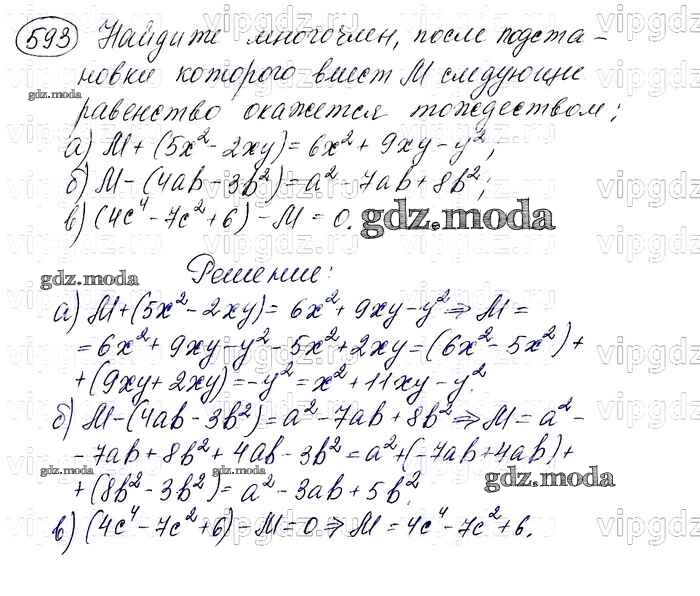 593 Найдите многочлен, после подста-
новки которого вмест М следующе
равенство окажется тождеством:
а) М + (5x² - 2xy) = 6x² + 9xy - y²;
б) М - (4ab - 3b²) = a² - 7ab + 8b²;
в) (4c⁴ - 7c² + 6) - М = 0.
Решение:
а) М + (5x² - 2xy) = 6x² + 9xy - y² ⇒ М =
= 6x² + 9xy - y² - 5x² + 2xy = (6x² - 5x²) +
+ (9xy + 2xy) = -y² = x² + 11xy - y².
б) М - (4ab - 3b²) = a² - 7ab + 8b² ⇒ М = a² -
- 7ab + 8b² + 4ab - 3b² = a² + (-7ab + 4ab) +
+ (8b² - 3b²) = a² - 3ab + 5b².
в) (4c⁴ - 7c² + 6) - М = 0 ⇒ М = 4c⁴ - 7c² + 6.
gdz.moda
gdz.moda
gdz.moda
gdz.moda
gdz.moda
gdz.moda
vipgdz.ru